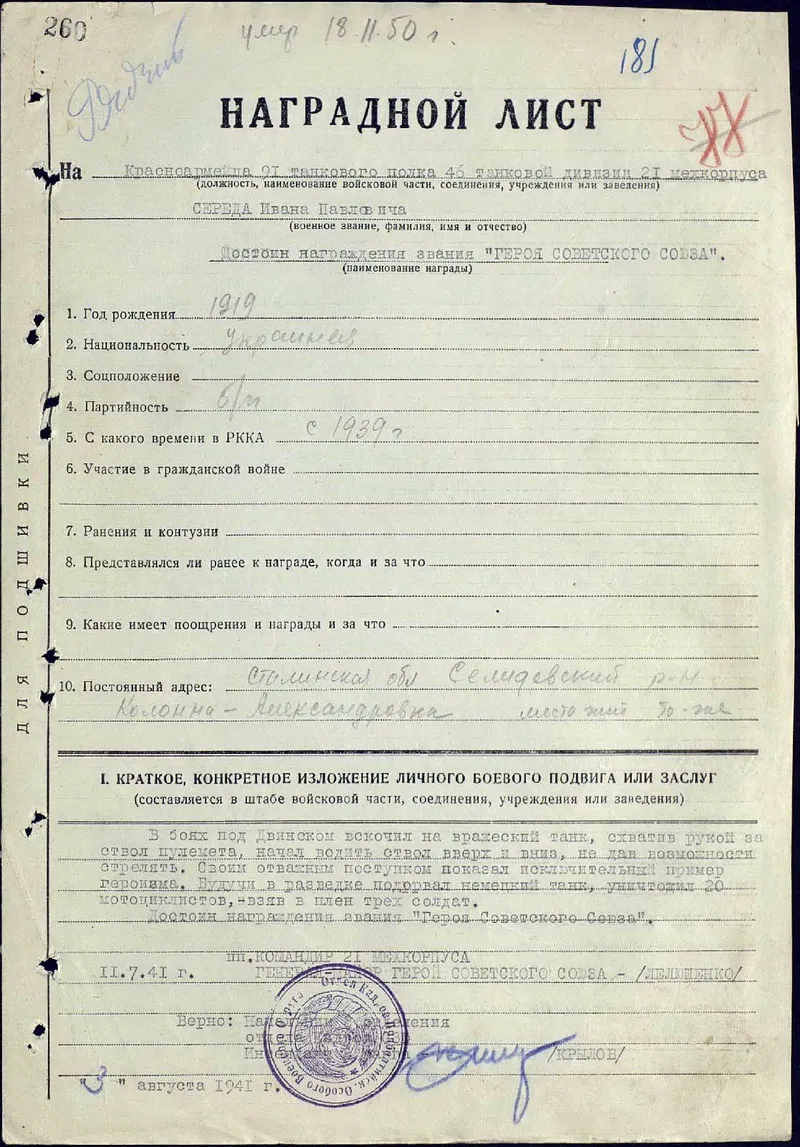 260
умер 18.11.50 г.
181
НАГРАДНОЙ ЛИСТ
На Красноармейца 91 танкового полка 46 танковой дивизии 21 мехкорпуса
(должность, наименование войсковой части, соединения, учреждения или заведения)
СЕРЕДА Ивана Павловича
(военное звание, фамилия, имя и отчество)
Достоин награждения звания "ГЕРОЯ СОВЕТСКОГО СОЮЗА".
(наименование награды)
1. Год рождения 1919
2. Национальность украинец
3. Соцположение
4. Партийность б/п
5. С какого времени в РККА с 1939 г
6. Участие в гражданской войне
7. Ранения и контузии
8. Представлялся ли ранее к награде, когда и за что
9. Какие имеет поощрения и награды и за что
10. Постоянный адрес: Сталинская обл Селидовский р-н
Колонна-Александровка место жит то-же
ДЛЯ ПОДШИВКИ
I. КРАТКОЕ, КОНКРЕТНОЕ ИЗЛОЖЕНИЕ ЛИЧНОГО БОЕВОГО ПОДВИГА ИЛИ ЗАСЛУГ
(составляется в штабе войсковой части, соединения, учреждения или заведения)
В боях под Двинском вскочил на вражеский танк, схватив рукой за
ствол пулемета, начал водить ствол вверх и вниз, не дав возможности
стрелять. Своим отважным поступком показал исключительный пример
героизма. Будучи в разведке подорвал немецкий танк, уничтожил 20
мотоциклистов,-взяв в плен трех солдат.
Достоин награждения звания "Героя Советского Союза".
пп.КОМАНДИР 21 МЕХКОРПУСА
11.7.41 г. ГЕНЕРАЛ-МАЙОР ГЕРОЙ СОВЕТСКОГО СОЮЗА - /ЛЕЛЮШЕНКО/
Верно: Начальник отделения
отдела кадров
/КРЫЛОВ/
"3" августа 1941 г.
Отдел Кадров Прибалтийск. Особого Военного Округа